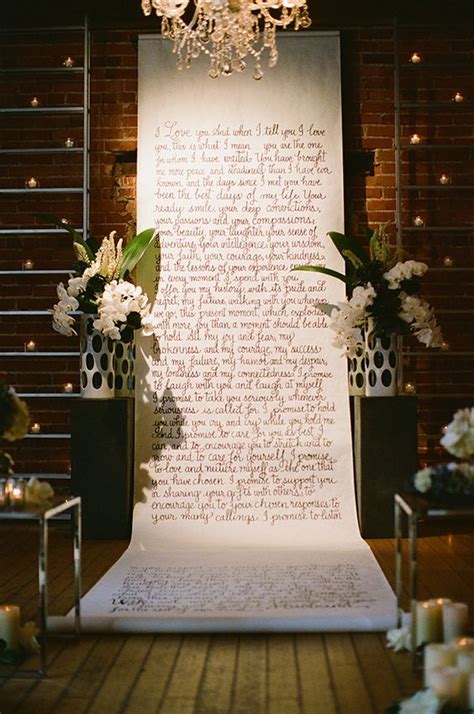 I Love you And when I tell you I love
you, this is what I mean you are the one
for whom I have waited. You have brought
me more peace and steadiness than I have ever
known, and the days since I met you have
been the best days of my life. Your
ready smile, your deep convictions,
your passions and your compassions
your beauty, your laughter, your sense of
adventure, your intelligence, your wisdom,
your faith, your courage, your kindness,
and the lessons of your experience
every moment I spend with you.
I offer you my history, with its pride and
regret, my future, walking with you wherever
we go, this present moment, which explodes
with more joy than a moment should be able
to hold. All my joy and fear, my
brokenness and my courage, my success
and my failure, my humor and my despair,
my loneliness and my connectedness. I promise
to laugh with you and laugh at myself
I promise to take you seriously whenever
seriousness is called for. I promise to hold
you while you cry and cry while you hold me
And I promise to care for you as best I
can, and to encourage you to stretch and to
grow and to care for yourself. I promise
to love and nurture myself as the one that
you have chosen. I promise to support you
in sharing your gifts with others, to
encourage you to your chosen responses to
your many callings. I promise to listen